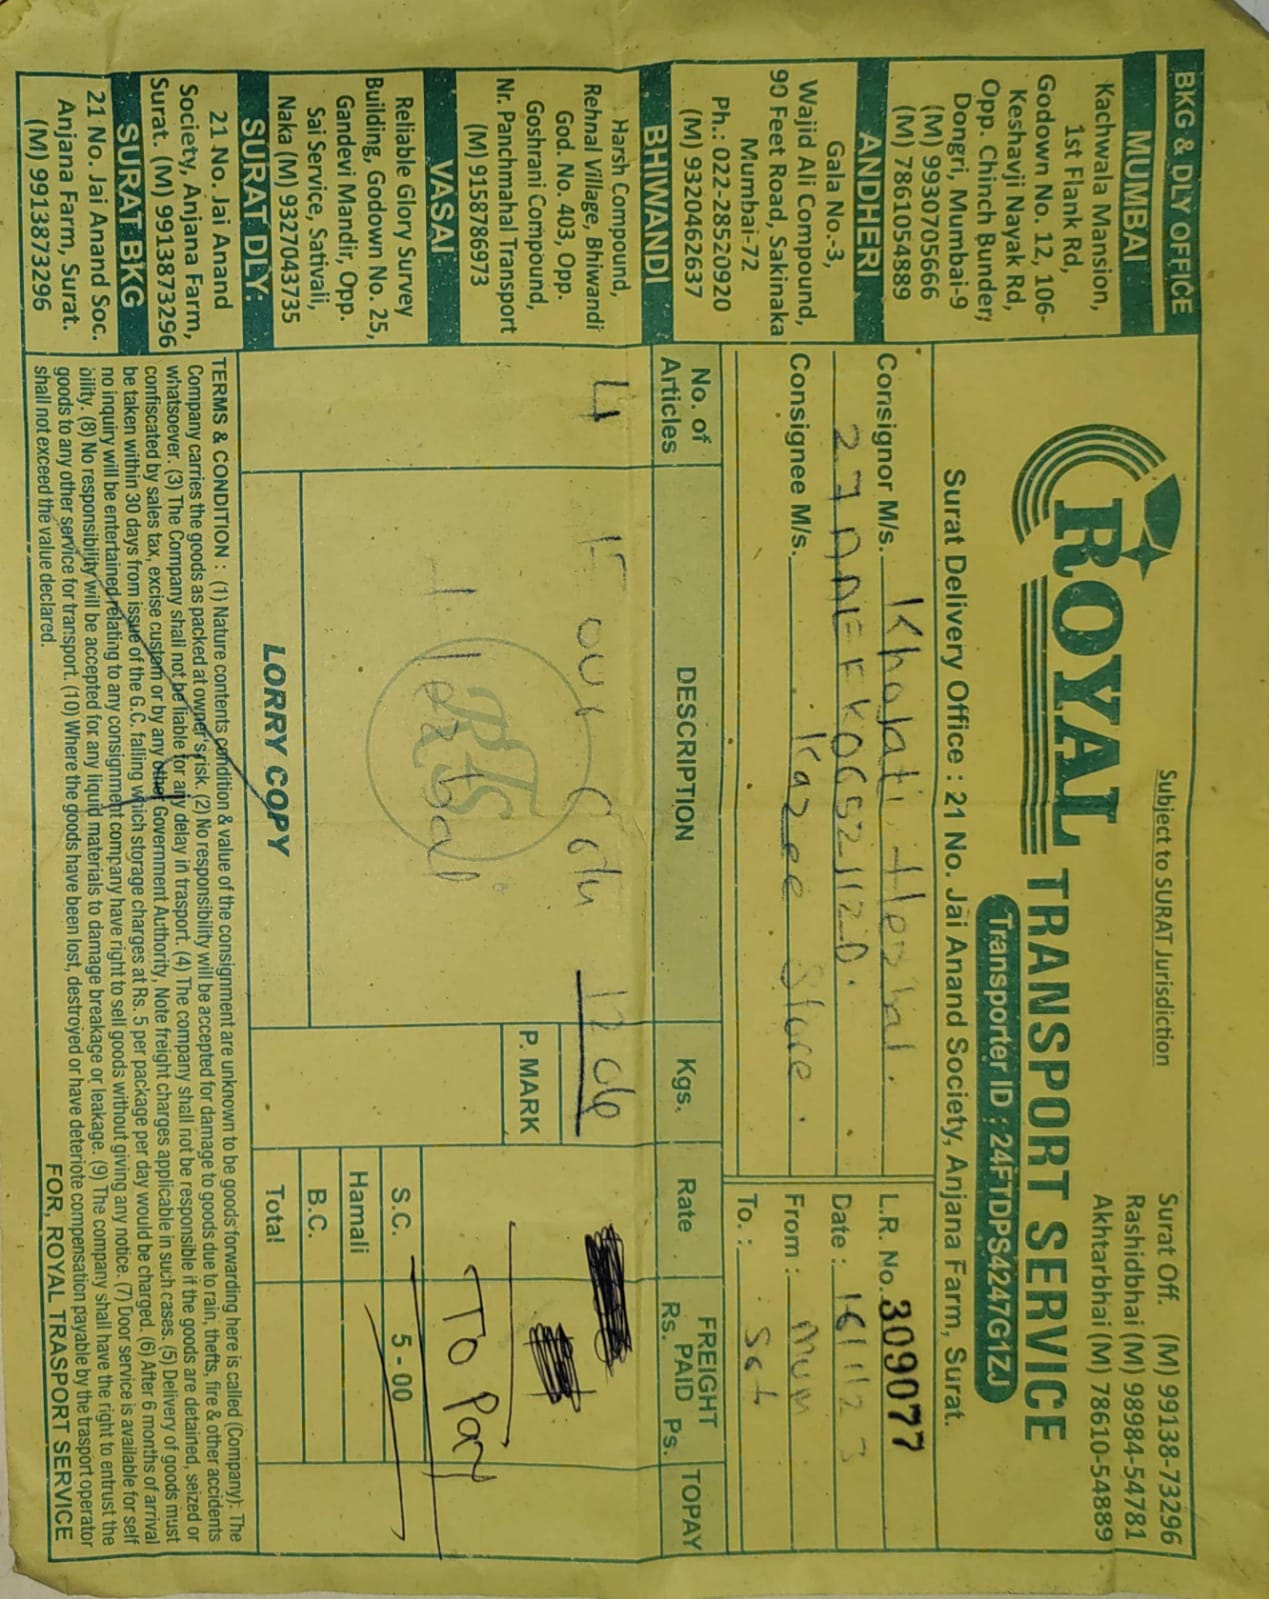 BKG & DLY OFFICE
MUMBAI
Kachwala Mansion,
1st Flank Rd,
Godown No. 12, 106-
Keshavji Nayak Rd,
Opp. Chinch Bunder,
Dongri, Mumbai-9
(M) 9930705666
(M) 7861054889
ANDHERI
Gala No.-3,
Wajid Ali Compound,
90 Feet Road, Sakinaka
Mumbai-72
Ph.: 022-28520920
(M) 9320462637
BHIWANDI
Harsh Compound,
Rehnal Village, Bhiwandi
God. No. 403, Opp.
Goshrani Compound,
Nr. Panchmahal Transport
(M) 9158786973
VASAI
Reliable Glory Survey
Building, Godown No. 25,
Gandevi Mandir, Opp.
Sai Service, Sativali,
Naka (M) 9327043735
SURAT DLY.
21 No. Jai Anand
Society, Anjana Farm,
Surat. (M) 9913873296
SURAT BKG
21 No. Jai Anand Soc.
Anjana Farm, Surat.
(M) 9913873296
Subject to SURAT Jurisdiction
Surat Off. (M) 99138-73296
Rashidbhai (M) 98984-54781
Akhtarbhai (M) 78610-54889
ROYAL TRANSPORT SERVICE
Transporter ID : 24FTDPS4247G1ZJ
Surat Delivery Office : 21 No. Jai Anand Society, Anjana Farm, Surat.
Consignor M/s. Khojati Herbal.
L.R. No. 309077
Date :
Consignee M/s. Store.
From : Mum
To. : Sat
No. of Articles
DESCRIPTION
Kgs.
Rate
FREIGHT PAID
Rs. Ps.
TOPAY
4 Four
Herbal
RTS
P. MARK
To Pay
S.C. 5-00
Hamali
B.C.
Total
LORRY COPY
TERMS & CONDITION : (1) Nature contents condition & value of the consignment are unknown to be goods forwarding here is called (Company). The
Company carries the goods as packed at owner's risk. (2) No responsibility will be accepted for damage to goods due to rain, thefts, fire & other accidents
whatsoever. (3) The Company shall not be liable for any delay in trasport. (4) The company shall not be responsible if the goods are detained, seized or
confiscated by sales tax, excise custom or by any other Government Authority, Note freight charges applicable in such cases. (5) Delivery of goods must
be taken within 30 days from issue of the G.C. falling which storage charges at Rs. 5 per package per day would be charged. (6) After 6 months of arrival
no inquiry will be entertained relating to any consignment company have right to sell goods without giving any notice. (7) Door service is available for self
bility. (8) No responsibility will be accepted for any liquid materials to damage breakage or leakage. (9) The company shall have the right to entrust the
goods to any other service for transport. (10) Where the goods have been lost, destroyed or have deteriote compensation payable by the trasport operator
shall not exceed the value declared.
FOR, ROYAL TRASPORT SERVICE